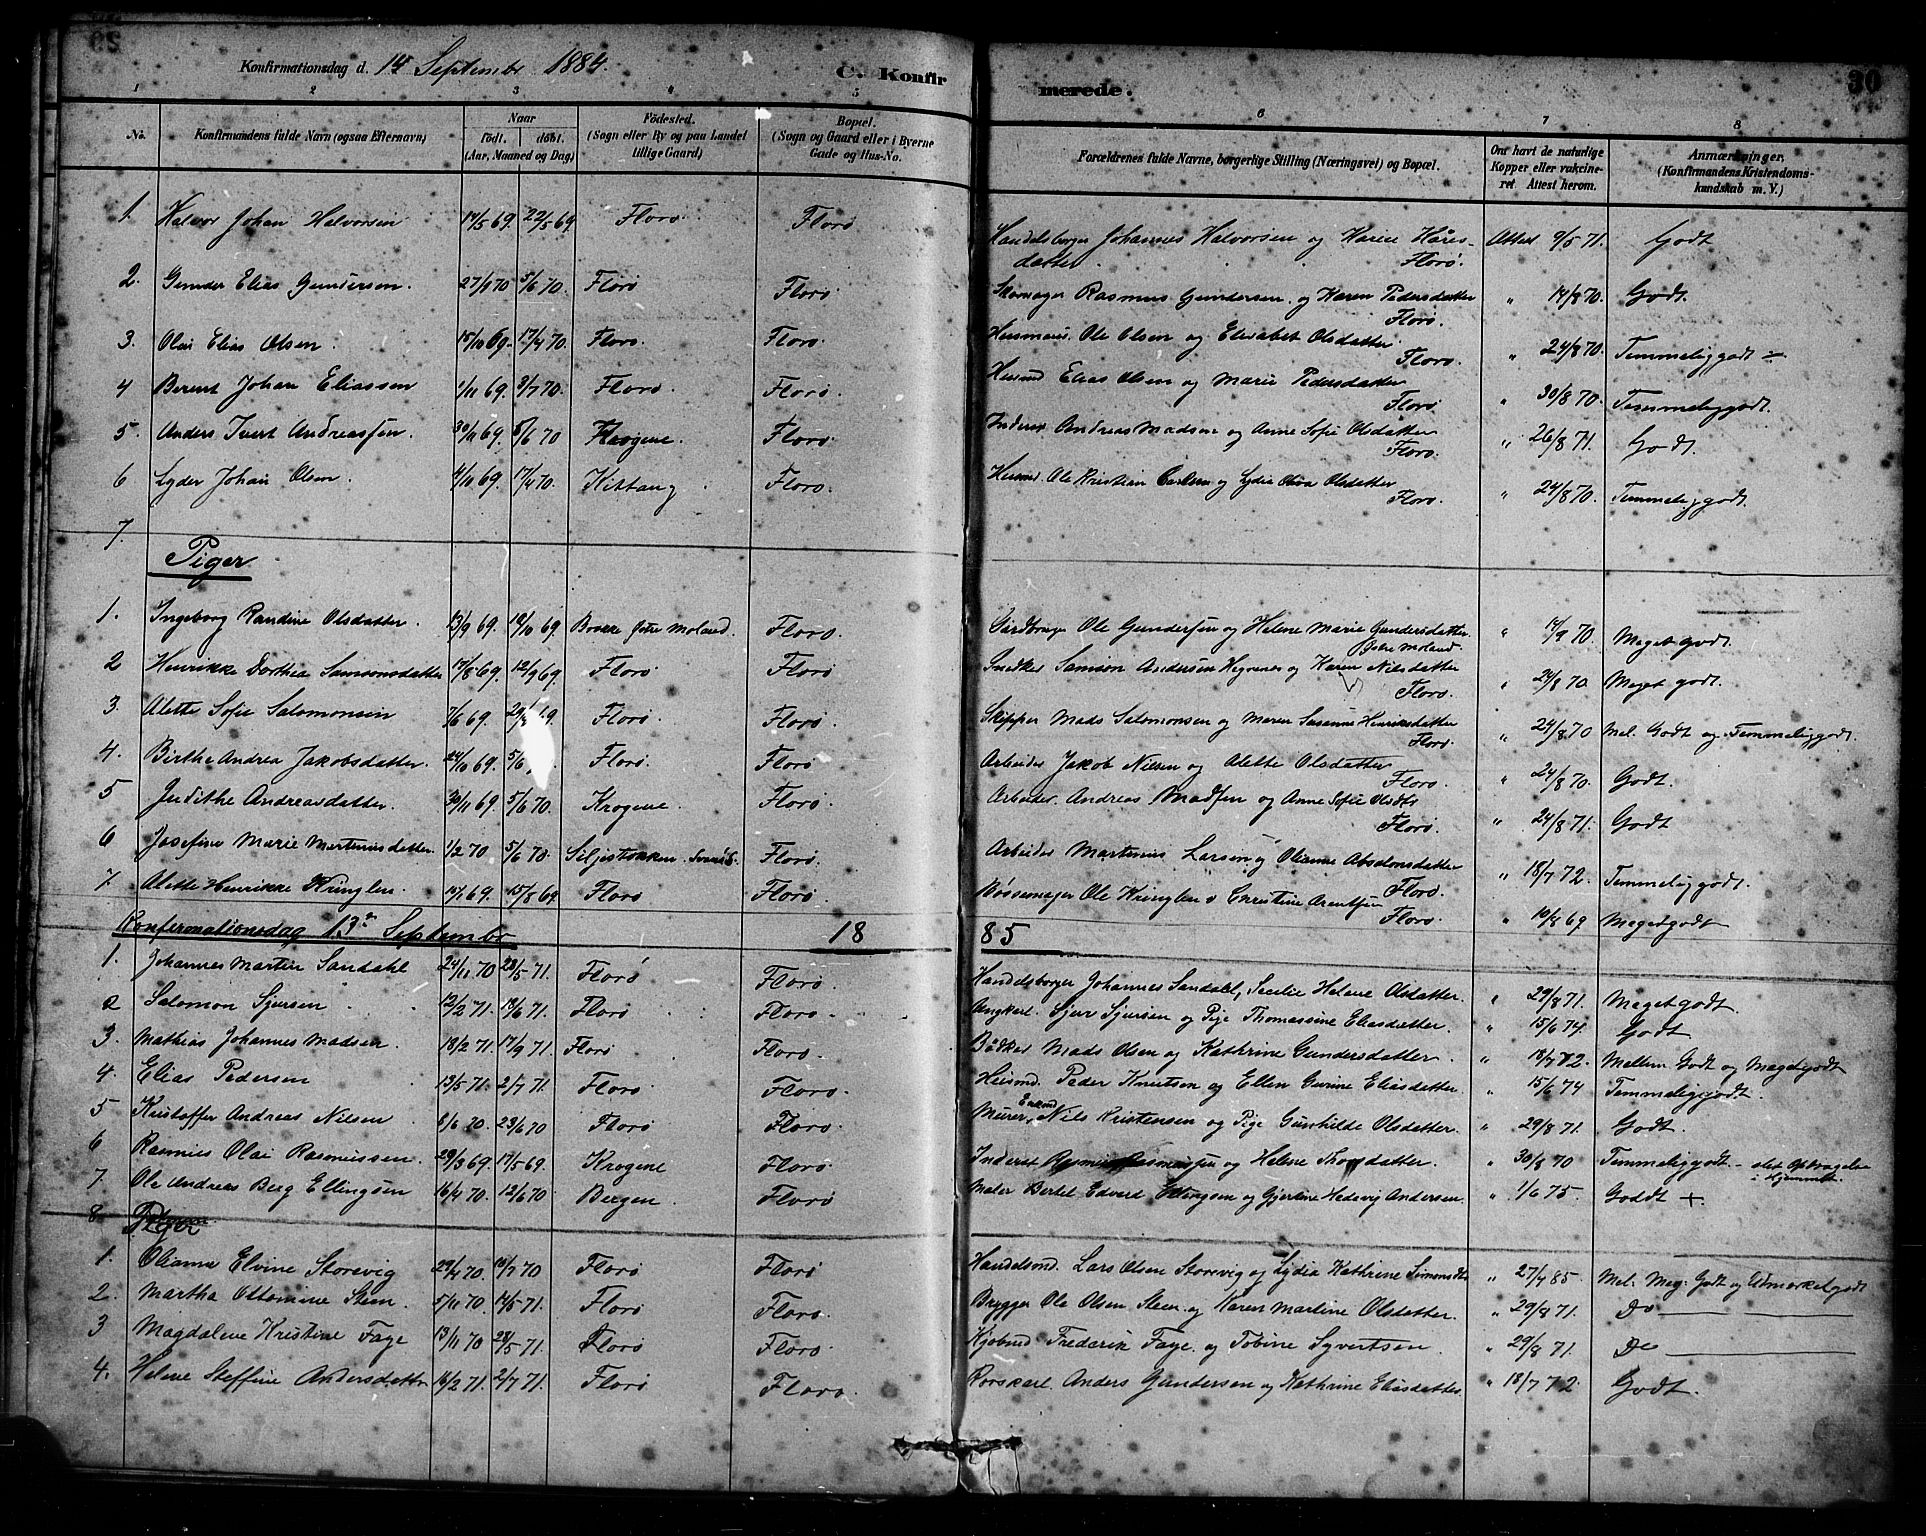 Konfirmationsdag d. 14 September 1884. C. Konfirmerede. 30
1 2 3 4 5 6 7 8
No. Konfirmandens fulde Navn (ogsaa Efternavn) Naar født. døbt. (Aar, Maaned og Dag) Fødested. (Sogn eller By og paa Landet tillige Gaard) Bopæl. (Sogn og Gaard eller i Byerne Gade og Hus-No. Forældrenes fulde Navne, borgerlige Stilling (Næringsvei) og Bopæl. Om havt de naturlige Kopper eller vakcineret Attest herom. Anmærkninger. (Konfirmandens Kristendomskundskab m. V.)
1. Halvor Johan Halvorsen 22/5 69 Florø Florø Handelsborger Johannes Halvorsen og Karen datter Florø. Attest 71. Godt
2. Elias Gundersen. 5/6 70. Florø Florø Skomager Rasmus Gundersen og Karen Pedersdatter Florø. " 70. Godt.
3. Olai Elias Olsen. 15/10 69. 17/4 70. Florø. Florø. Ole Olsen og Elisabet Olsdatter Florø. " 24/8 70. Temmeliggodt
4 Berent Johan Eliassen 1/11 69. 3/7 70. Florø. Florø. Elias Olsen og Marie Pedersdatter Florø " 30/8 70. Temmeliggodt.
5. Anders Ivert Andreassen. 30/11 69. 5/6 70 Krogene. Florø. Inderst Andreas Madsen og Anne Sofie Olsdatter Florø. " 26/8 71. Godt.
6 Lyder Johan Olsen. 69. 17/4 70. Kittang Florø. Ole Kristian Carlsen og Lydia Olsdatter Florø. " 24/8 70. Temmeliggodt.
7.
Piger
1. Ingeborg Randine Olsdatter. 13/9 69. 10/10 69. Østre Moland. Florø. Ole Gundersen og Helene Marie Gundersdatter Østre Moland " 14/9 70. Megetgodt.
2 Henrikke Dorthea Samsonsdatter 17/8 69. 12/9 69. Florø Florø. Snedker Samson Andersen Hegrenes og Karen Nilsdatter Florø. " 24/8 70. Meget godt.
3. Alette Sofie Salomonsen 7/6 69. Florø. Florø. Skipper Mads Salomonsen og Maren Susanne Henriksdatter Florø. " 24/8 70 Mel. Godt og Temmeliggodt.
4. Birthe Andrea Jakobsdatter. 24/10 69. 5/6 Florø. Florø. Arbeider Jakob Nilsen og Alette Olsdatter Florø. " 24/8 70. Godt.
5 Judithe Andreasdatter. 30/11 69. 5/6 70. Krogene. Florø. Arbeider. Andreas Madsen og Anne Sofie Olsdtr Florø. " 24/8 71. Godt
6 Josefine Marie Martinusdatter. 1/2 70 5/6 70. Florø. Arbeider Martinius Larsen og Olianne Absalonsdatter Florø. " 18/7 72. Temmeliggodt.
7. Alette Henrikke Kringlen. 69. 15/8 69. Florø Florø. Bøssemager Ole Kringlen o Christine Arentsen Florø. " 10/8 69 Megetgodt
Konfirmationsdag 13de September 1885
1. Johannes Martin Sandahl 24/11 70 28/5 71. Florø Florø. Handelsborger Johannes Sandahl, Secilie Helene Olsdatter. " 29/8 71. Megetgodt.
2 Salomon Sjursen 12/2 71. 71. Florø Florø. Sjur Sjursen og Pige Thomassine Eliasdatter. " 15/6 74. Godt
3. Mathias Johannes Madsen. 18/2 71. 17/9 71. Florø Florø. Bødker Mads Olsen og Kathrine Gundersdatter. " 18/7 72. Mellem Godt og Megetgodt
4. Elias Pedersen 13/5 71. 2/7 71. Florø Florø. Peder Knutsen og Ellen Gurine Eliasdatter. " 15/6 74 Temmeliggodt.
5 Kristoffer Andreas Nilsen 6/6 70. 23/6 70 Florø Florø. Murer, Enkmd Nils Kristensen og Pige Gunhilde Olsdatter. " 29/8 71. Godt.
6 Rasmus Olai Rasmussen. 29/3 69. 17/5 69. Krogene Florø. Inderst Rasmus Rasmussen og Helene Thorsdatter. " 30/8 70 Temmeliggodt - slet Opdragelse i Hjemmet.
7. Ole Andreas Berg Ellingsen 16/4 70. 12/6 70. Bergen Florø Maler Bertel Edvard Ellingsen og Gjertine Hedevig Andersen. " 1/6 75. Godt +
8. Piger
1. Olianna Elvine Storevig 29/4 70. 10/7 70 Florø Florø Handelsmd. Lars Olsen Storevig og Lydia Kathrine Simonsdtr " 27/4 85. Mel. Meg. Godt og Udmærketgodt
2. Martha Ottomine Steen 5/11 70. 14/5 71. Florø Florø. Brygger Ole Olsen Steen og Karen Martine Olsdatter. " 29/8 71. Do
3 Magdalene Kristine Faye 13/11 70 28/5 71. Florø Florø. Kjøbmd. Frederik Faye og Tobine Syvertsen. " 29/8 71. Do
4. Helene Steffine Andersdatter 16/2 71. 2/7 71. Florø Florø. Rorskarl. Anders Gundersen og Kathrine Eliasdatter. " 18/7 72. Godt.